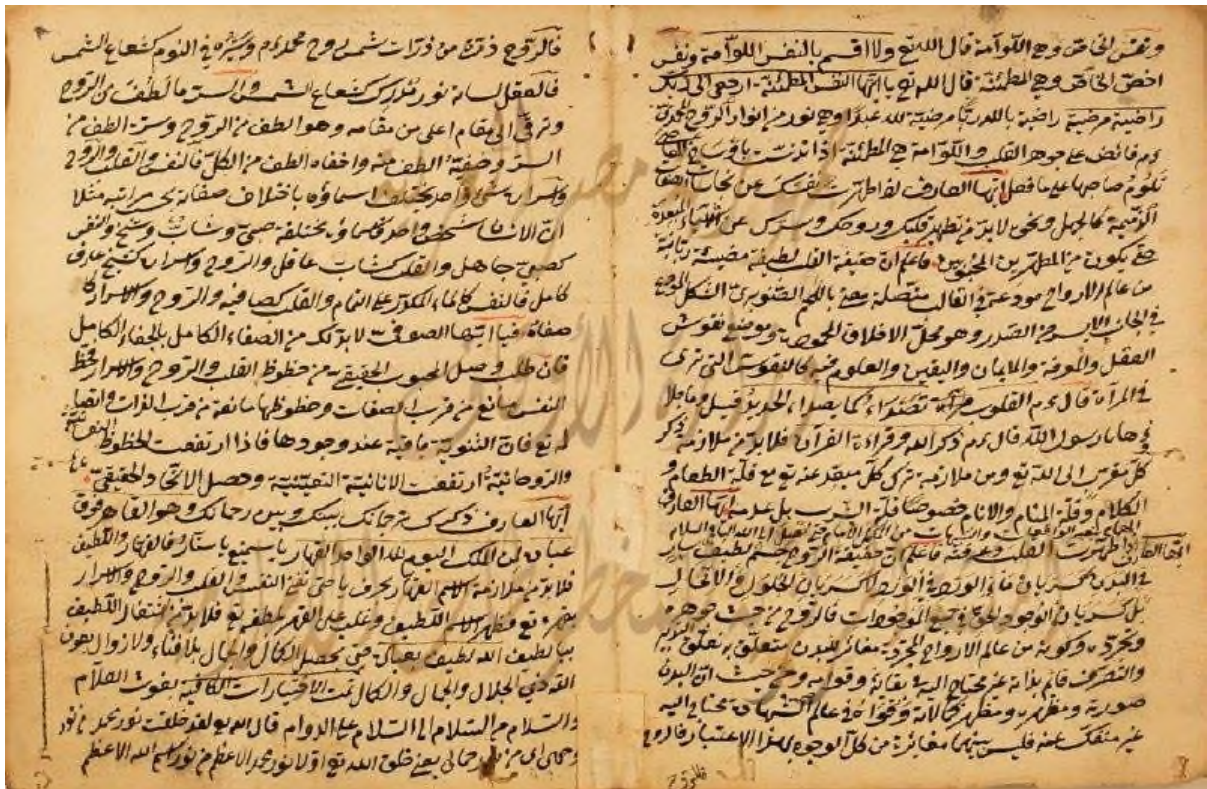 ونفس الخاص وهي اللوامة قال الله تع ولا اقسم بالنفس اللوامة ونفس
اخص الخاص وهي المطمئنة قال الله تع يا ايتها النفس المطمئنة ارجعي الى ربك
راضية مرضية راضية بالله ربا مرضية لله عبدا وهي نور من انوار الروح المحمدي
فائض على جوهر القلب واللوامة هي المطمئنة اذا تدنست باوساخ
تلوم صاحبها على ما فعل ايها العارف اذا طهرت نفسك عن نجاسات الصفات
الذميمة كالجهل ونحوه لابد من تطهير قلبك وروحك وسرك عن الاشياء المبعدة
حتى يكون من المطهرين المحبوبين فاعلم ان حقيقة القلب لطيفة مضيئة ربانية
من عالم الارواح مودعة في القالب متصلة باللحم الصنوبري الشكل المودع
في الجانب الايسر من الصدر وهو محل الاخلاق المحمودة وموضع نقوش
العقل والمعرفة والايمان واليقين والعلوم فيه كالنقوش التي ترى
في المرآة قال عم القلوب تصدأ كما يصدأ الحديد قيل وما جلا
ؤها يا رسول الله قال عم ذكر الله وقراءة القرآن فلابد من ملازمة ذكر
كل مقرب الى الله تع ومن ملازمة ترك كل مبعد عنه تع مع قلة الطعام و
الكلام وقلة المنام والانام خصوصا قلة الشرب بل عدمه ايها العارف
اذا طهرت القلب وعرفته فاعلم ان حقيقة الروح جسم لطيف سار
في البدن كسريان ماء الورد في الورد لا كسريان الحلول والاتحاد
بل كسريان الوجود الحق في جميع الموجودات فالروح من حيث جوهره
وتجرده وكونه من عالم الارواح المجردة مغائر للبدن متعلق به تعلق التدبير
والتصرف قائم بذاته غير محتاج اليه في بقائه وقوامه ومن حيث ان البدن
صورته ومظهره ومظهر كمالاته وقواه في عالم الشهادة محتاج اليه
غير منفك عنه فليس بينهما مغائرة من كل الوجوه بهذا الاعتبار فالروح
فالروح
فالروح ذرة من ذرات شمس روح محمد عم وسره في النوم كشعاع الشمس
فالعقل لسانه نور مدرك كشعاع الشمس والسر ما لطف من الروح
وترقى الى مقام اعلى من مقامه وهو الطف من الروح وسر السر الطف من
السر وخفيه الطف منه واخفاه الطف من الكل فالنفس والقلب والروح
والاسرار شيء واحد تختلف اسماؤه باختلاف صفاته بحسب مراتبه مثلا
ان الانسان شخص واحد واسماؤه مختلفة صبي وشاب وشيخ والنفس
كصبي جاهل والقلب كشاب عاقل والروح والاسرار كشيخ عارف
كامل فالنفس كالماء المكدر على التمام والقلب كصافيه والروح والاسرار كا
صفاه فيا ايها الصوفي لابد لك من الصفاء الكامل بالجفاء الكامل
فان طلب وصل المحبوب الحقيقي من حظوظ القلب والروح والاسرار وحظ
النفس مانع من قرب الصفات وحظوظها مانعة من قرب الذات
له تع فان الثنوية باقية عند وجودها فاذا ارتفعت الحظوظ
والروحانية ارتفعت الانانية التعينية وحصل الاتحاد الحقيقي
ايها العارف ذكرك ترجمانك بينك وبين رحمانك وهو القاهر فوق
عباده لمن الملك اليوم لله الواحد القهار يا سميع يا ستار فالقهار واللطيف
فلابد من ملازمة الاسم القهار بحرف يا حتى تفنى النفس والقلب والروح والاسرار
بقهره تع فيظهر الاسم اللطيف ويغلب على القهر لطفه تع فلابد من اشتغال اللطيف
بيا لطيف الله لطيف بعباده حتى يحصل الكمال والجمال بلا فناء ولا زوال بعون
الله ذي الجلال والجمال والكمال تمت الاختيارات الكافية بغوث العلام
والسلام من السلام الى السلام على الدوام قال الله لقد خلقت نور محمد من نور
وجهي اي من نور جمالي يعني خلق الله تع اولا نور محمد الاعظم من نور اسم الله الاعظم